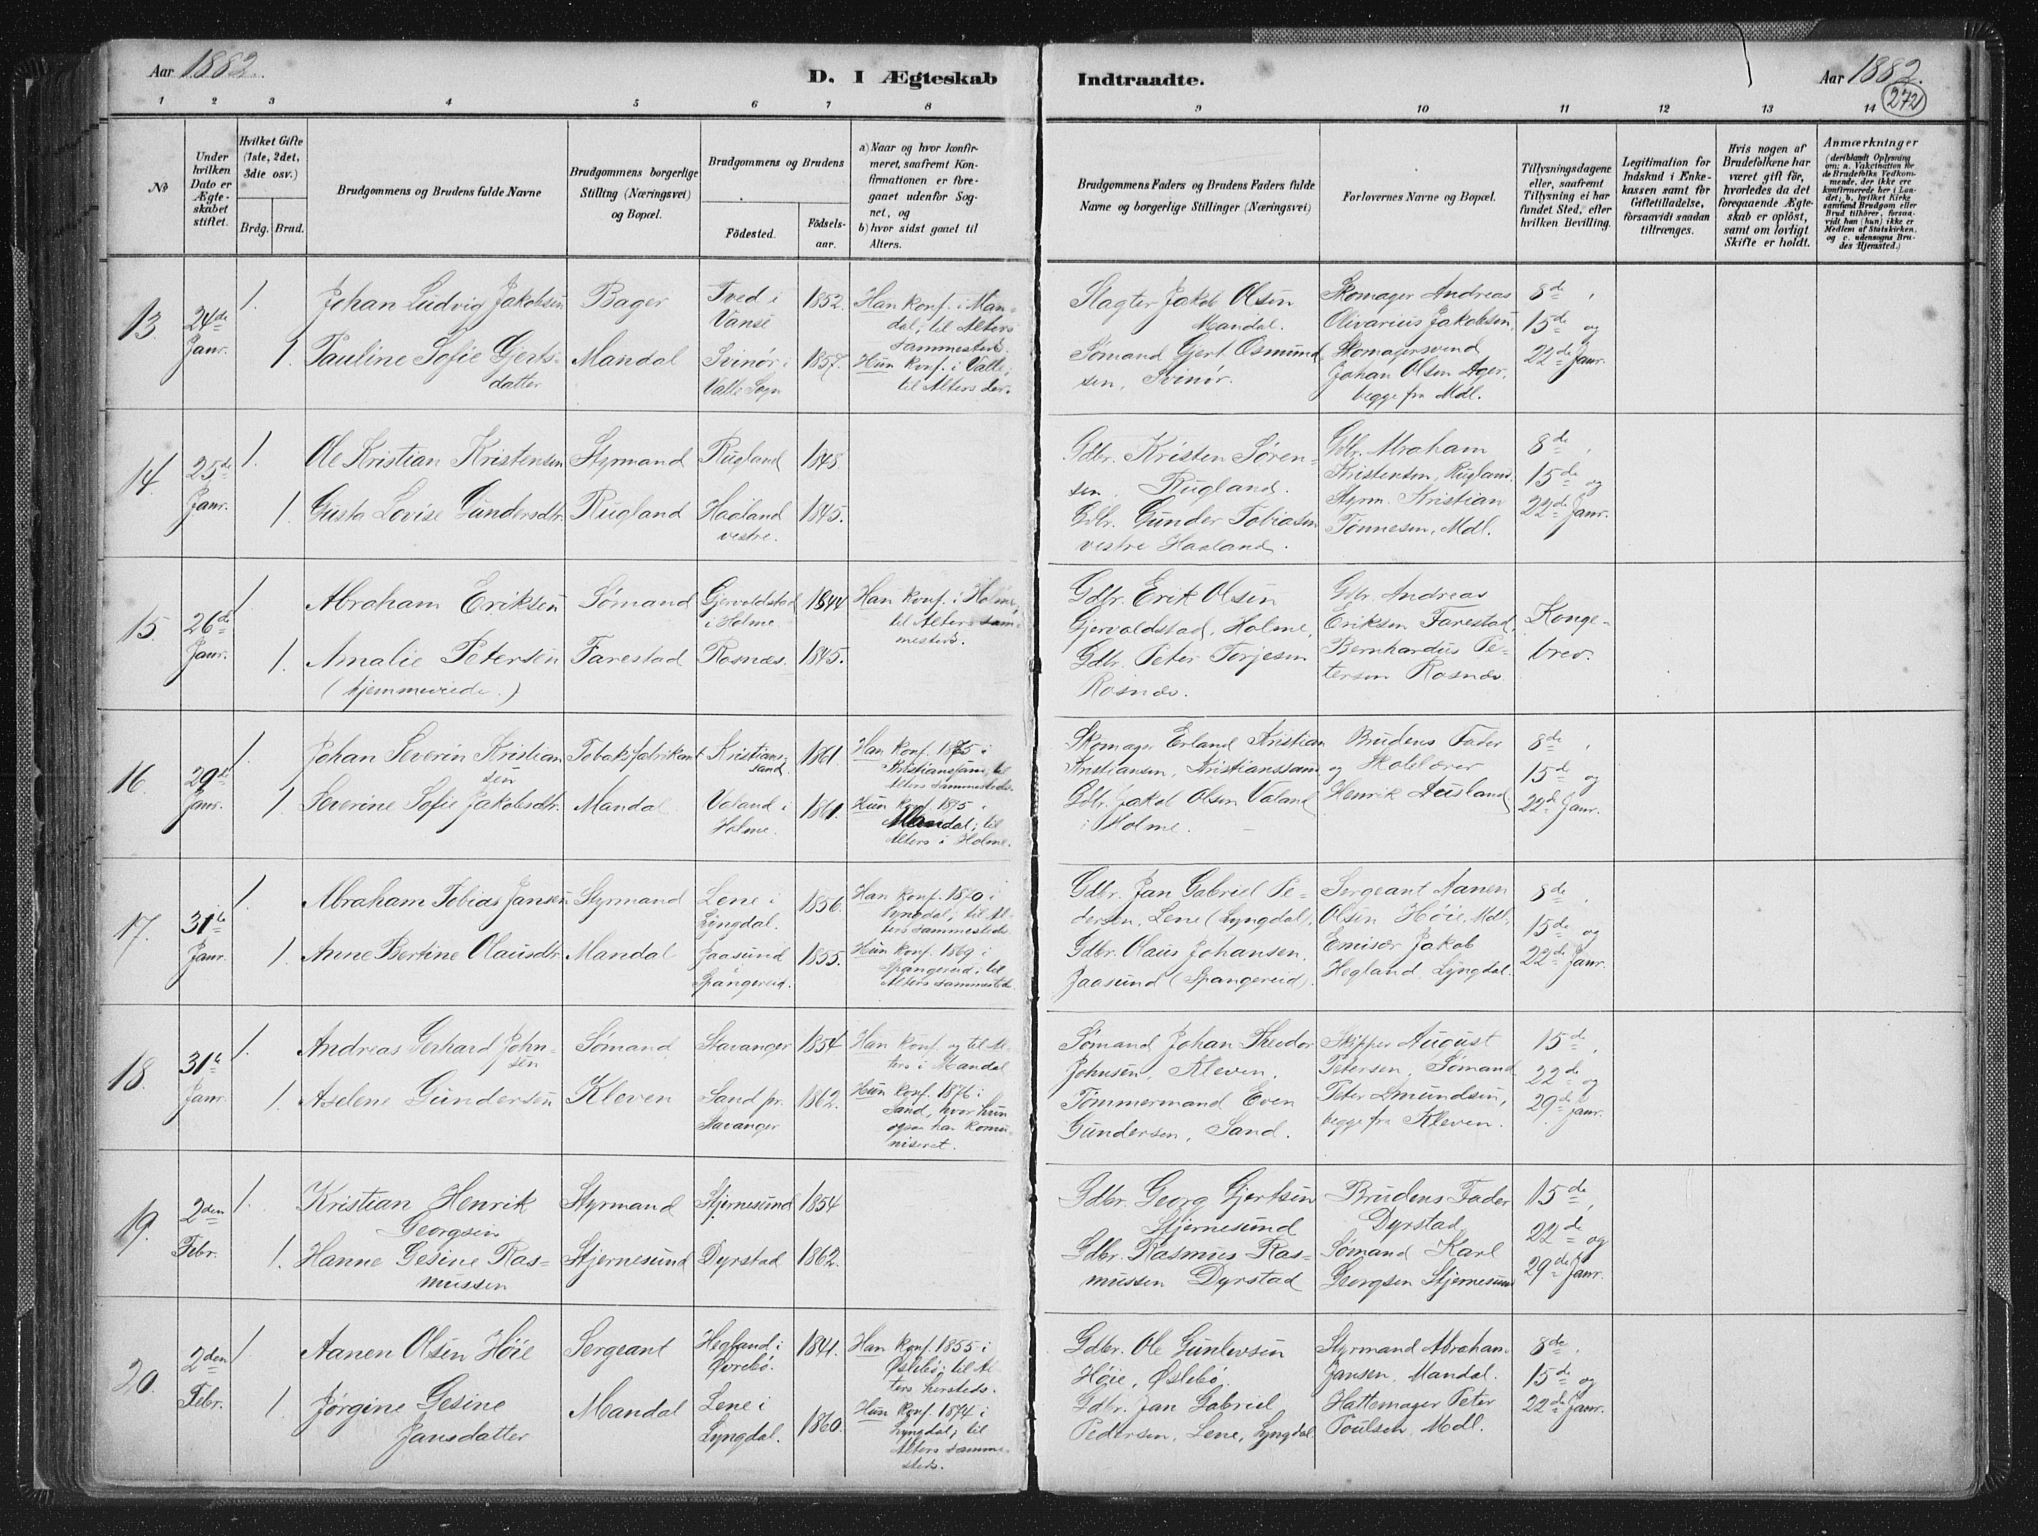 Aar 1882.
D. I Ægteskab Indtraadte.
Aar 1882.
272
1 2 3 4 5 6 7 8 9 10 11 12 13 14
No
Under hvilken Dato er Ægteskabet stiftet.
Hvilket Gifte (1ste, 2det, 3die osv.)
Brdg. Brud.
Brudgommens og Brudens fulde Navne
Brudgommens borgerlige Stilling (Næringsvei) og Bopæl.
Brudgommens og Brudens
Födested.
Födsels-aar.
a) Naar og hvor konfirmeret, saafremt Konfirmationen er foregaaet udenfor Sognet, og
b) hvor sidst gaaet til Alters.
Brudgommens Faders og Brudens Faders fulde Navne og borgerlige Stillinger (Næringsvei)
Forlovernes Navne og Bopæl.
Tillysningsdagene eller, saafremt Tillysning ei har fundet Sted, efter hvilken Bevilling.
Legitimation for Indskud i Enkekassen samt for Giftetilladelse, forsaavidt saadan tiltrænges.
Hvis nogen af Brudefolkene har været gift för, hvorledes da det foregaaende Ægteskab er oplöst, samt om lovligt Skifte er holdt.
Anmærkninger
(deriblandt Oplysning om: a. Vakcination for de Brudefolks Vedkommende, der ikke ere konfirmerede her i Landet; b. hvilket Kirkesamfund Brudgom eller Brud tilhörer, forsaavidt han (hun) ikke er Medlem af Statskirken, og c. udensogns Brudes Hjemsted.)
13. 24de Janr. 1. Johan Ludvig Jakobsen Bager Tved i Vanse 1852. Han konf. i Mandal; til Alters sammesteds.
1. Pauline Sofie Gjertsdatter Mandal Svinør i Valle Sogn 1857. Hun konf. i Valle; til Alters der.
Slagter Jakob Olsen Mandal.
Sømand Gjert Osmundsen, Svinør.
Skomager Andreas Olivarius Jakobsen,
Skomagersvend Johan Olsen Ager, begge fra Mdl.
8de, 15de og 22de Janr.
14. 25de Janr. 1. Ole Kristian Kristensen Styrmand Rugland 1848
1. Gusta Lovise Gundersdtr. Rugland Haaland vestre. 1845.
Gdbr. Kristen Sørensen. Rugland.
Gdbr. Gunder Tobiasen vestre Haaland.
Gdbr. Abraham Kristensen, Rugland
Styrm. Kristian Tönnesen, Mdl.
8de, 15de og 22de Janr.
15. 26de Janr. 1 Abraham Eriksen Sömand Gjervoldstad i Holme 1844 Han konf. i Holme, til Alters sammesteds.
1. Amalie Petersen Farestad Rosnæs. 1845.
(hjemmeviede.)
Gdbr. Erik Olsen Gjervoldstad, Holme,
Gdbr. Peter Torjesen Rosnæs.
Gdbr. Andreas Eriksen Farestad,
Bernhardus Petersen Rosnæs
Kongebrev.
16. 29de Janr. 1. Johan Severin Kristiansen Tobaksfabrikant Kristianssand. 1861. Han konf. 1875 i Kristianssand; til Alters sammesteds.
1. Severine Sofie Jakobsdtr. Mandal Valand i Holme. 1861. Hun konf. 1875 i Mandal; til Alters i Holme.
Skomager Erland Kristian Kristiansen, Kristianssand
Gdbr. Jakob Olsen Valand i Holme.
Brudens Fader og Skolelærer Henrik Ausland
8de, 15de og 22de Janr.
17. 31te Janr. 1. Abraham Tobias Jansen Styrmand Lene i Lyngdal. 1856. Han konf. 1870 i Lyngdal; til Alters sammesteds.
1. Anne Bertine Olausdtr. Mandal Jaasund Spangereid. 1855. Hun konf. 1869 i Spangereid; til Alters sammesteds.
Gdbr. Jan Gabriel Pedersen, Lene (Lyngdal).
Gdbr. Olaus Johansen, Jaasund (Spangereid).
Sergeant Aanen Olsen Höie, Mdl,
Emisær Jakob Hegland, Lyngdal.
8de, 15de og 22de Janr.
18. 31te Janr. 1. Andreas Gerhard Johnsen Sømand Stavanger 1854 Han konf. og til Alters i Mandal
1. Aselene Gundersen Kleven Sand pr. Stavanger 1862. Hun konf. 1876 i Sand, hvor hun ogsaa har komuniseret.
Sømand Johan Theodor Johnsen, Kleven.
Tömmermand Even Gundersen, Sand.
Skipper August Petersen, Sömand Peter Emundsen, begge fra Kleven.
15de, 22de og 29de Janr.
19. 2den Febr. 1. Kristian Henrik Georgsen Styrmand Stjernesund 1854
1. Hanne Gesine Rasmussen Stjernesund Dyrstad 1862.
Gdbr. Georg Gjertsen Stjernesund
Gdbr. Rasmus Rasmussen Dyrstad
Brudens Fader Dyrstad,
Sømand Karl Georgsen Stjernesund
15de, 22de og 29de Janr.
20. 2den Febr. 1. Aanen Olsen Höie Sergeant Hegland i Øvrebö. 1841. Han konf. 1855 i Øslebö; til Alters hersteds.
1. Jørgine Gesine Jansdatter Mandal Lene i Lyngdal. 1860. Hun konf. 1874 i Lyngdal; til Alters sammesteds.
Gdbr. Ole Guntevsen Höie, Øslebö.
Gdbr. Jan Gabriel Pedersen, Lene, Lyngdal.
Styrmand Abraham Jansen, Mandal.
Hattemager Peter Poulsen, Mdl.
8de, 15de og 22de Janr.